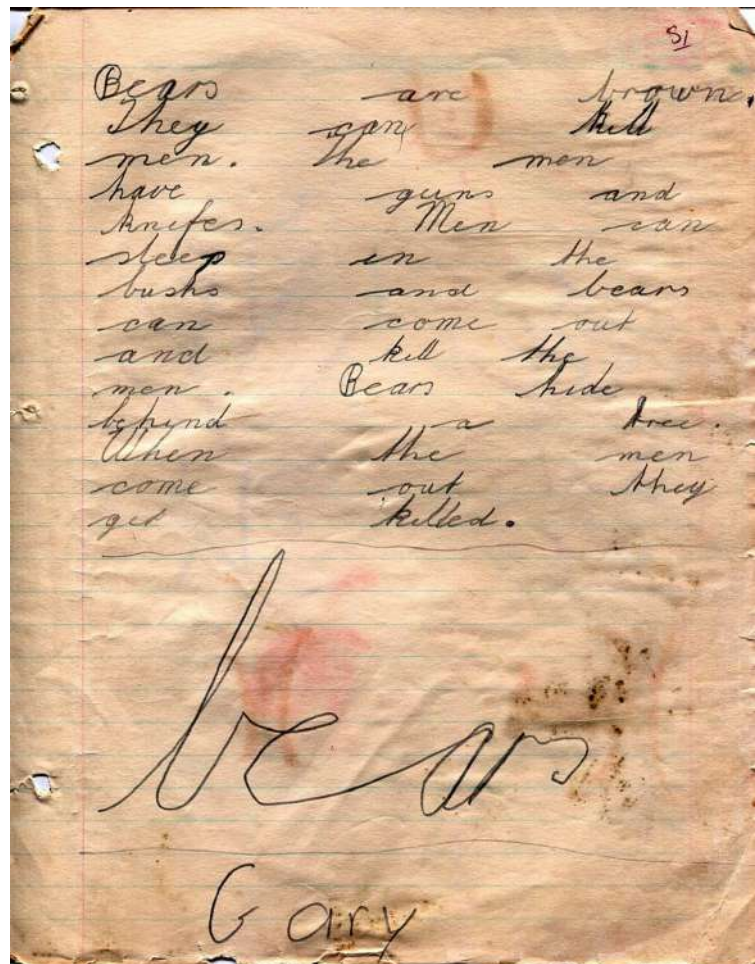 SI
Bears are brown.
They can kill
men. The men
have guns and
knifes. Men can
sleep in the
bushs and bears
can come out
and kill the
men. Bears hide
behind a tree.
When the men
come out they
get killed.
bears
Gary